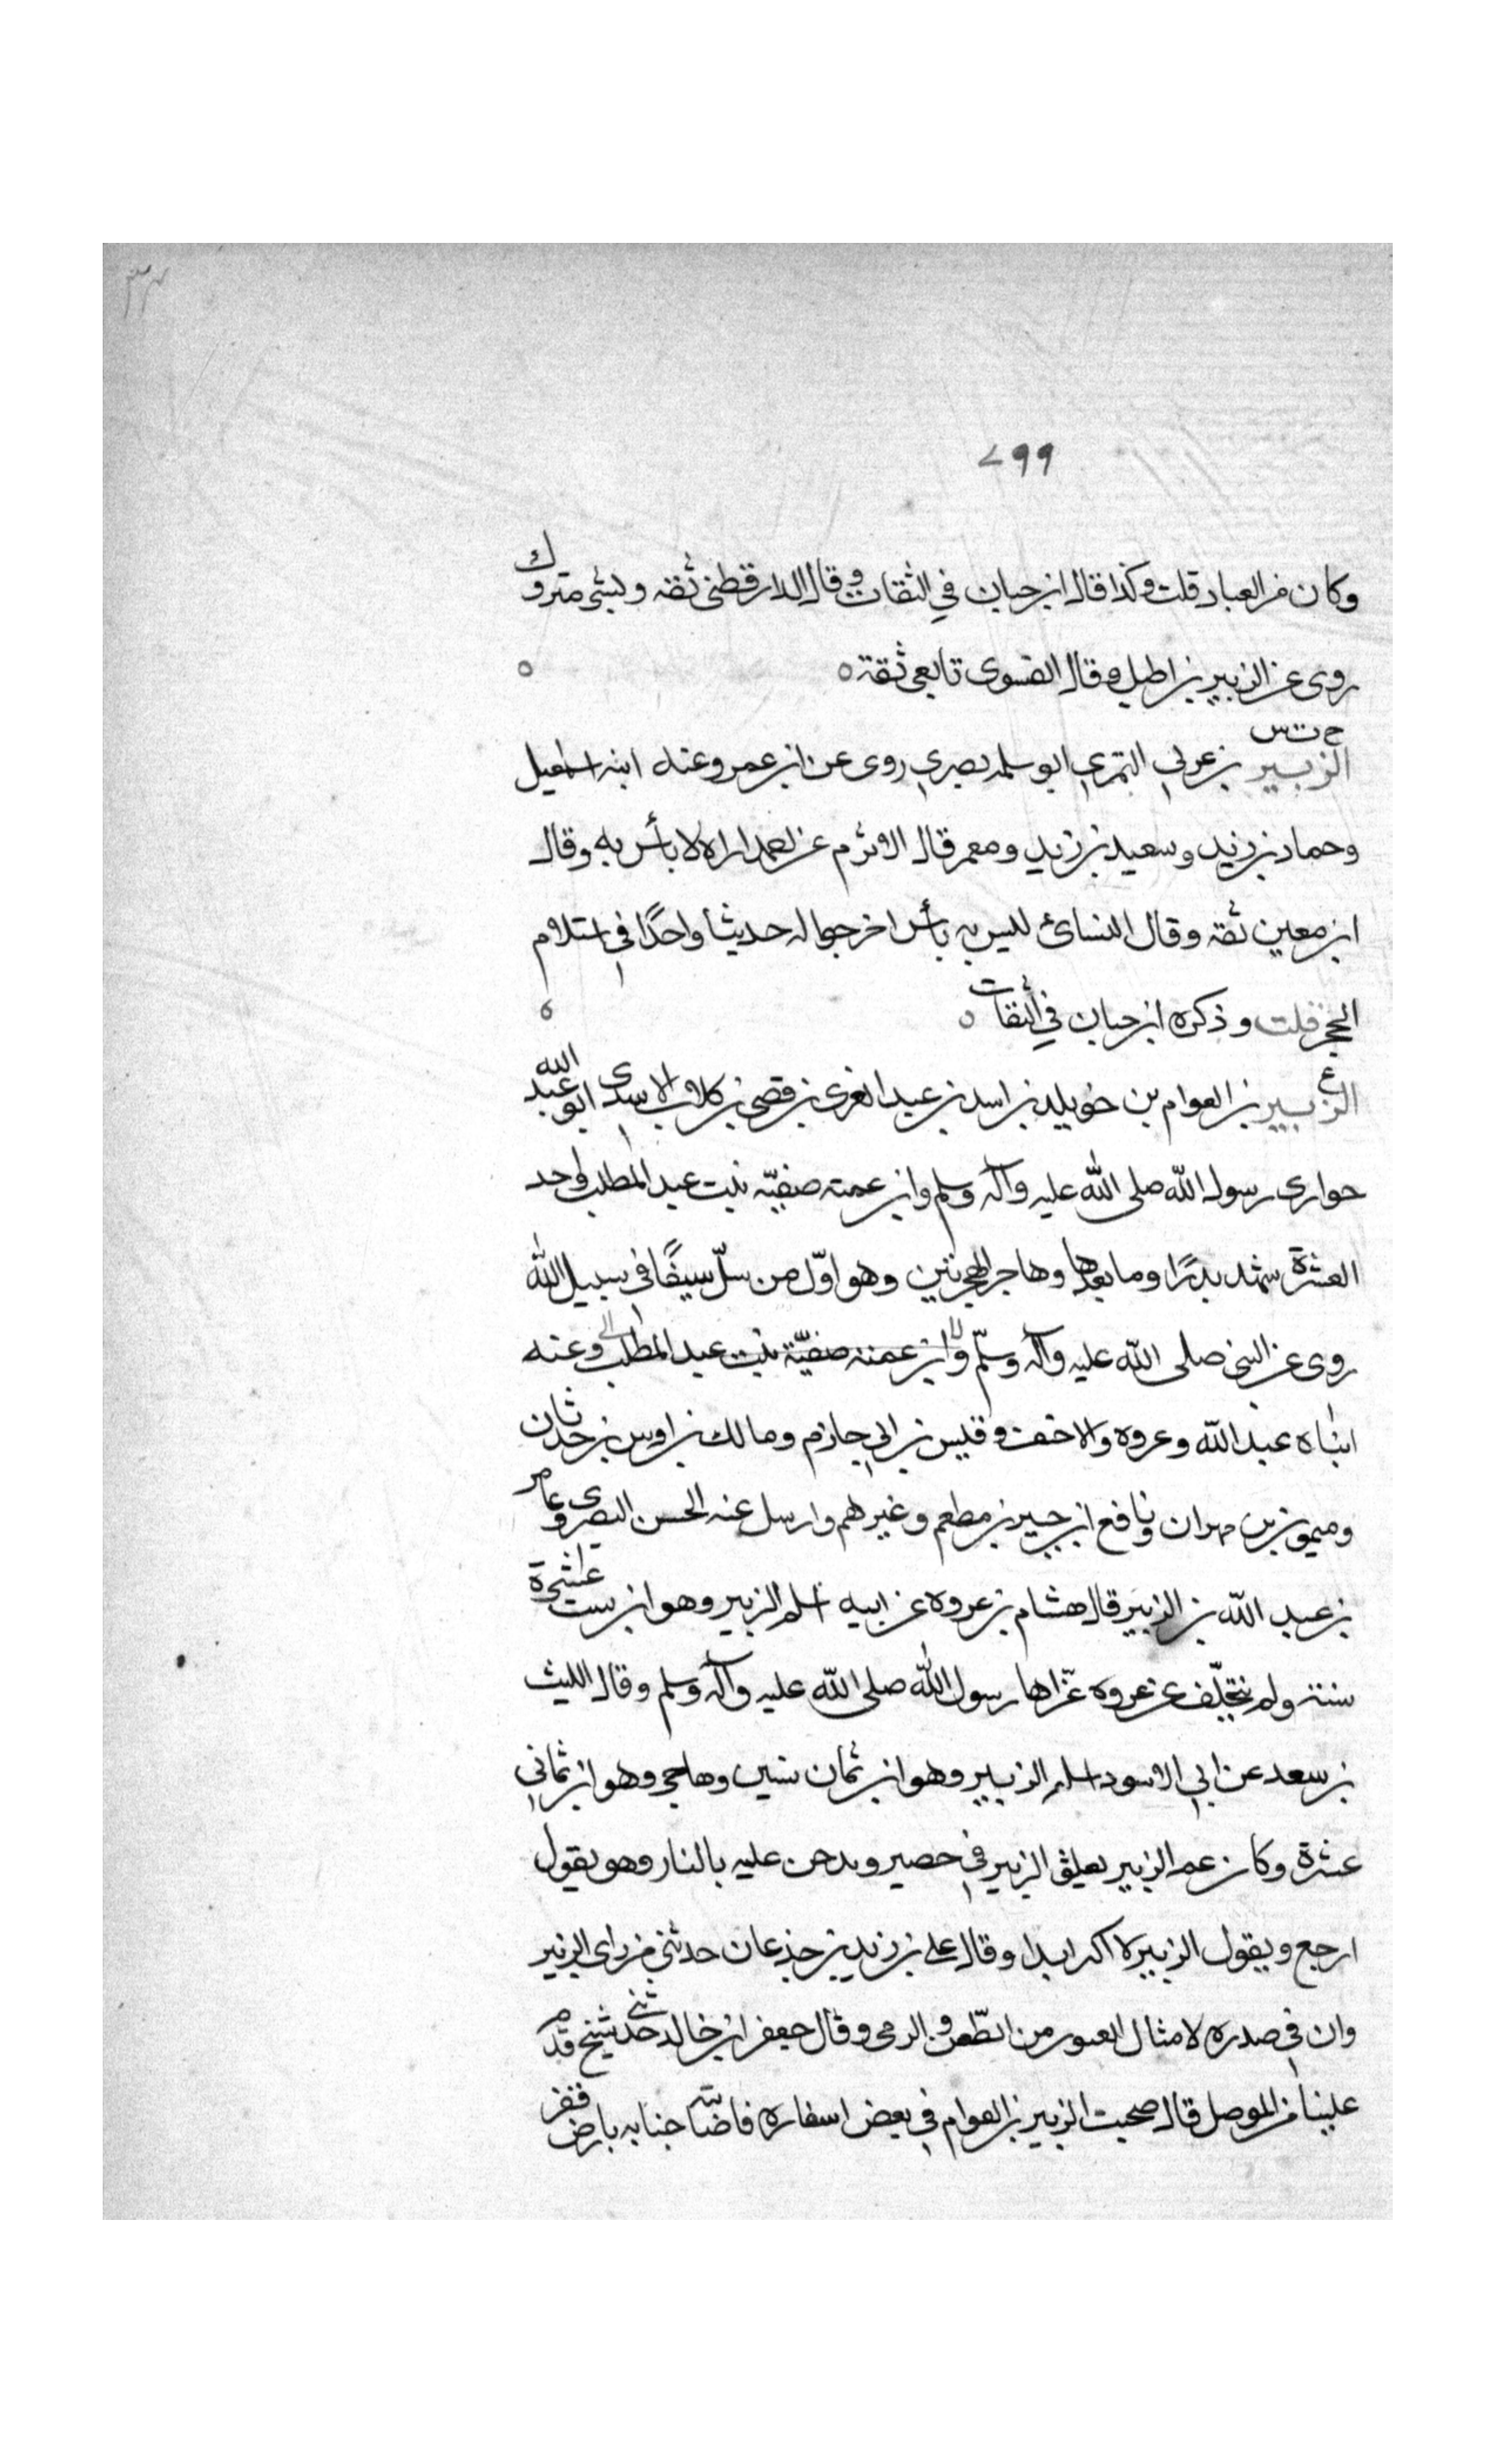 ٧٩٩
وكان من العباد قلت وكذا قال ابن حبان في الثقات وقال الدارقطني ثقه وبشي متروك
روى عن الزبير بن اطيل وقال الفسوى تابعى ثقة ه ه
خ ت س
الزبير بن عربي النمري ابو سلمه بصري روى عن ابن عمر وعنه ابنه اسمعيل
وحماد بن زيد وسعيد بن زيد ومعمر قال الاثرم عن احمد اراه لا بأس به وقال
ابن معين ثقه وقال النسائ ليس به بأس اخرجا له حديثا واحدًا في استلام
الحجر قلت وذكره ابن حبان في الثقات ه ه
ع
الزبير بن العوام بن خويلد بن اسد بن عبد العزى بن قصى بن كلاب الاسدى ابو عبد الله
حوارى رسول الله صلى الله عليه وآله وسلم وابن عمته صفيّه بنت عبد المطلب واحد
العشرة شهد بدرًا وما بعدها وهاجر الهجرتين وهو اوّل من سلّ سيفًا في سبيل الله
روى عن النبي صلى الله عليه وآله وسلّم وابن عمته صفيّة بنت عبد المطلب وعنه
ابناه عبد الله وعروه والاحنف وقيس بن ابي حازم ومالك بن اوس بن حدثان
وميمون بن مهران ونافع ابن جبير بن مطعم وغيرهم وارسل عنه الحسن البصرى وعامر
بن عبد الله بن الزبير قال هشام بن عروه عن ابيه اسلم الزبير وهو ابن ست عشرة
سنة ولم يتخلّف عن غزوه غزاها رسول الله صلى الله عليه وآله وسلم وقال الليث
بن سعد عن ابي الاسود اسلم الزبير وهو ابن ثمان سنين وهاجر وهو ابن ثماني
عشرة وكان عم الزبير يعلق الزبير في حصير ويدخن عليه بالنار وهو يقول
ارجع ويقول الزبير لا اكفر ابدا وقال علي بن زيد بن جذعان حدثني من راى الزبير
وان في صدره لامثال العيون من الطّعن والرمى وقال جعفر ابن خالد حدثنى شيخ قدم
علينا من الموصل قال صحبت الزبير بن العوام في بعض اسفاره فاصابته جنابه بارض قفر